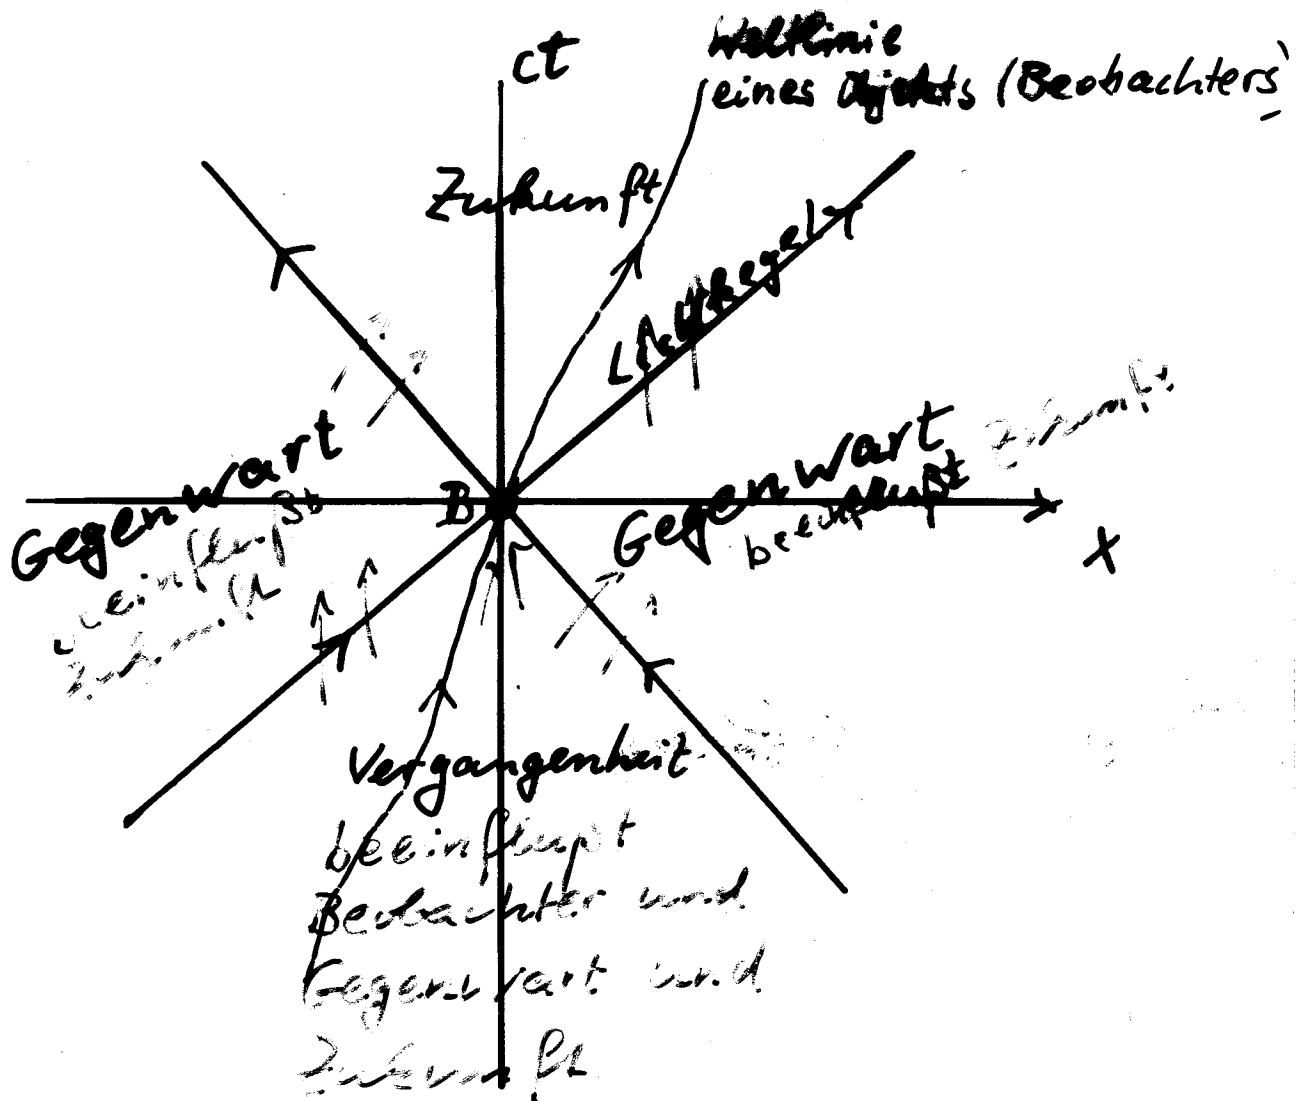 ct
Weltlinie
eines Objekts (Beobachters)
Zukunft
Lichtkegel
Gegenwart
beeinflußt
Zukunft
B
Gegenwart
beeinflußt
Zukunft
x
Vergangenheit
beeinflußt
Beobachter und
Gegenwart und
Zukunft